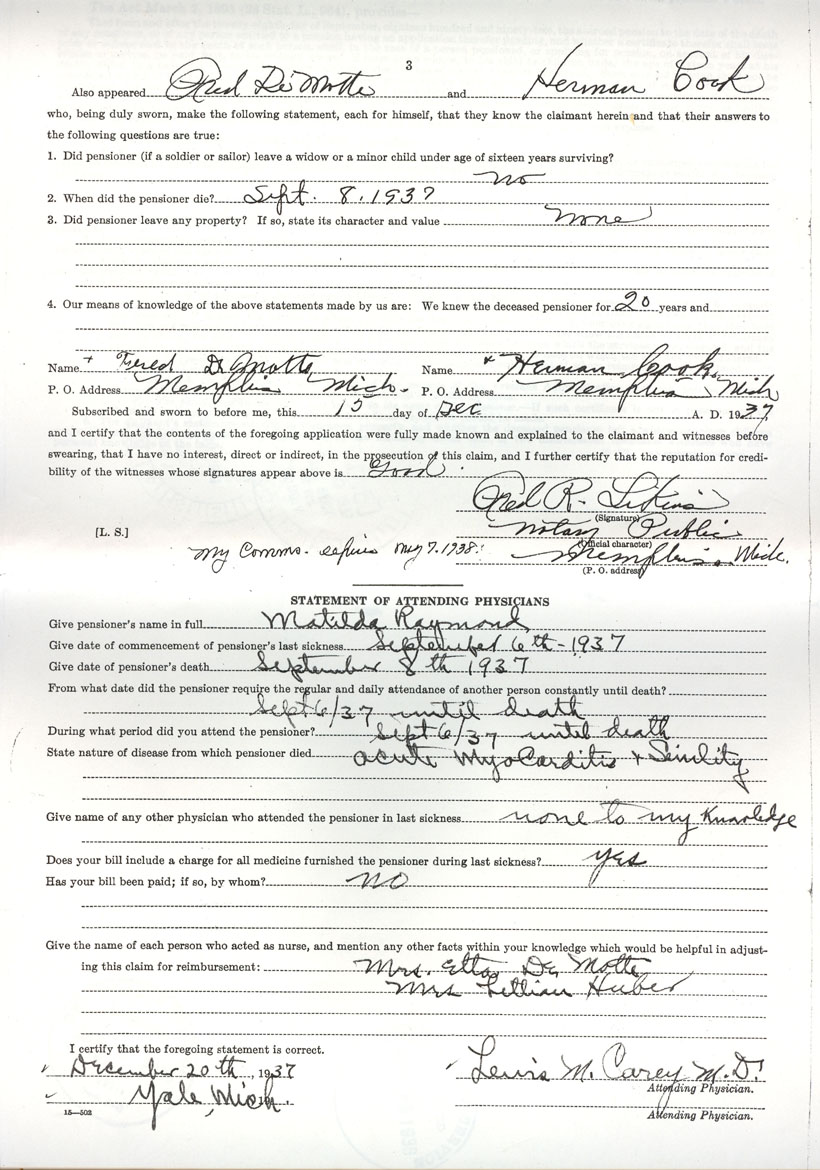 3
Also appeared Fred De Motte and Herman Cook
who, being duly sworn, make the following statement, each for himself, that they know the claimant herein and that their answers to
the following questions are true:
1. Did pensioner (if a soldier or sailor) leave a widow or a minor child under age of sixteen years surviving?
no
2. When did the pensioner die? Sept. 8. 1937
3. Did pensioner leave any property? If so, state its character and value none
4. Our means of knowledge of the above statements made by us are: We knew the deceased pensioner for 20 years and
Name + Fered De Motte Name x Herman Cook
P. O. Address Memphis Mich. P. O. Address Memphis Mich
Subscribed and sworn to before me, this 15 day of Dec A. D. 1937
and I certify that the contents of the foregoing application were fully made known and explained to the claimant and witnesses before
swearing, that I have no interest, direct or indirect, in the prosecution of this claim, and I further certify that the reputation for credi-
bility of the witnesses whose signatures appear above is Good
Fred R.
(Signature)
[L. S.] Notary Public
(Official character)
My Comms. expires May 7. 1938. Memphis, Mich.
(P. O. address)
STATEMENT OF ATTENDING PHYSICIANS
Give pensioner's name in full Matilda Raymond
Give date of commencement of pensioner's last sickness September 6th - 1937
Give date of pensioner's death September 8th 1937
From what date did the pensioner require the regular and daily attendance of another person constantly until death?
Sept 6/37 until death
During what period did you attend the pensioner? Sept 6/37 until death
State nature of disease from which pensioner died acute Myocarditis + Seinility
Give name of any other physician who attended the pensioner in last sickness none to my Knowledge
Does your bill include a charge for all medicine furnished the pensioner during last sickness? yes
Has your bill been paid; if so, by whom? no
Give the name of each person who acted as nurse, and mention any other facts within your knowledge which would be helpful in adjust-
ing this claim for reimbursement: Mrs. Etta De Motte
Mrs Lillian Huber
I certify that the foregoing statement is correct.
December 20th, 1937 Lewis M. Carey M.D.
Attending Physician.
Yale, Mich.
15—502 Attending Physician.